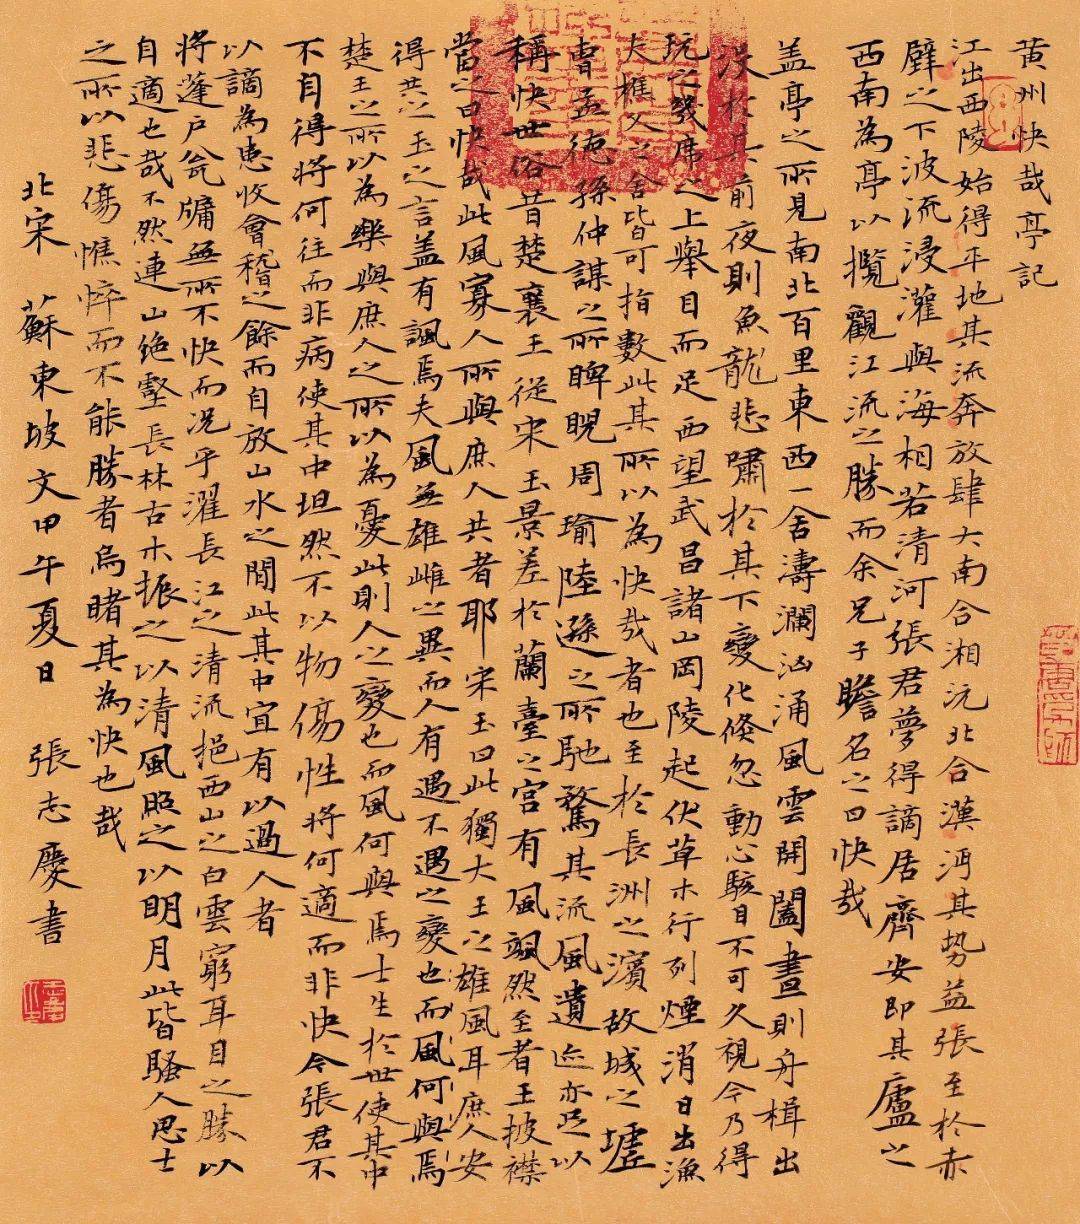 黄州快哉亭記
江出西陵始得平地其流奔放肆大南合湘沅北合漢沔其势益張至於赤
壁之下波流浸灌與海相若清河張君夢得謫居齊安即其廬之
西南為亭以攬觀江流之勝而余兄子瞻名之曰快哉
盖亭之所見南北百里東西一舍濤瀾汹涌風雲開闔晝則舟楫出
没於其前夜則魚龍悲嘯於其下變化倏忽動心駭目不可久視今乃得
玩之幾席之上舉目而足西望武昌諸山岡陵起伏草木行列煙消日出漁
夫樵父之舍皆可指數此其所以為快哉者也至於長洲之濱故城之墟
曹孟德孫仲謀之所睥睨周瑜陸遜之所馳騖其流風遺迹亦足以
稱快世俗昔楚襄王從宋玉景差於蘭臺之宮有風颯然至者王披襟
當之曰快哉此風寡人所與庶人共者耶宋玉曰此獨大王之雄風耳庶人安
得共之玉之言盖有諷焉夫風無雄雌之異而人有遇不遇之變也而風何與焉
楚王之所以為樂與庶人之所以為憂此則人之變也而風何與焉士生於世使其中
不自得將何往而非病使其中坦然不以物傷性將何適而非快今張君不
以謫為患收會稽之餘而自放山水之間此其中宜有以過人者
將蓬戶瓮牖無所不快而况乎濯長江之清流挹西山之白雲窮耳目之勝以
自適也哉不然連山絕壑長林古木振之以清風照之以明月此皆騷人思士
之所以悲傷憔悴而不能勝者烏睹其為快也哉
北宋 蘇東坡文甲午夏日 張志慶書